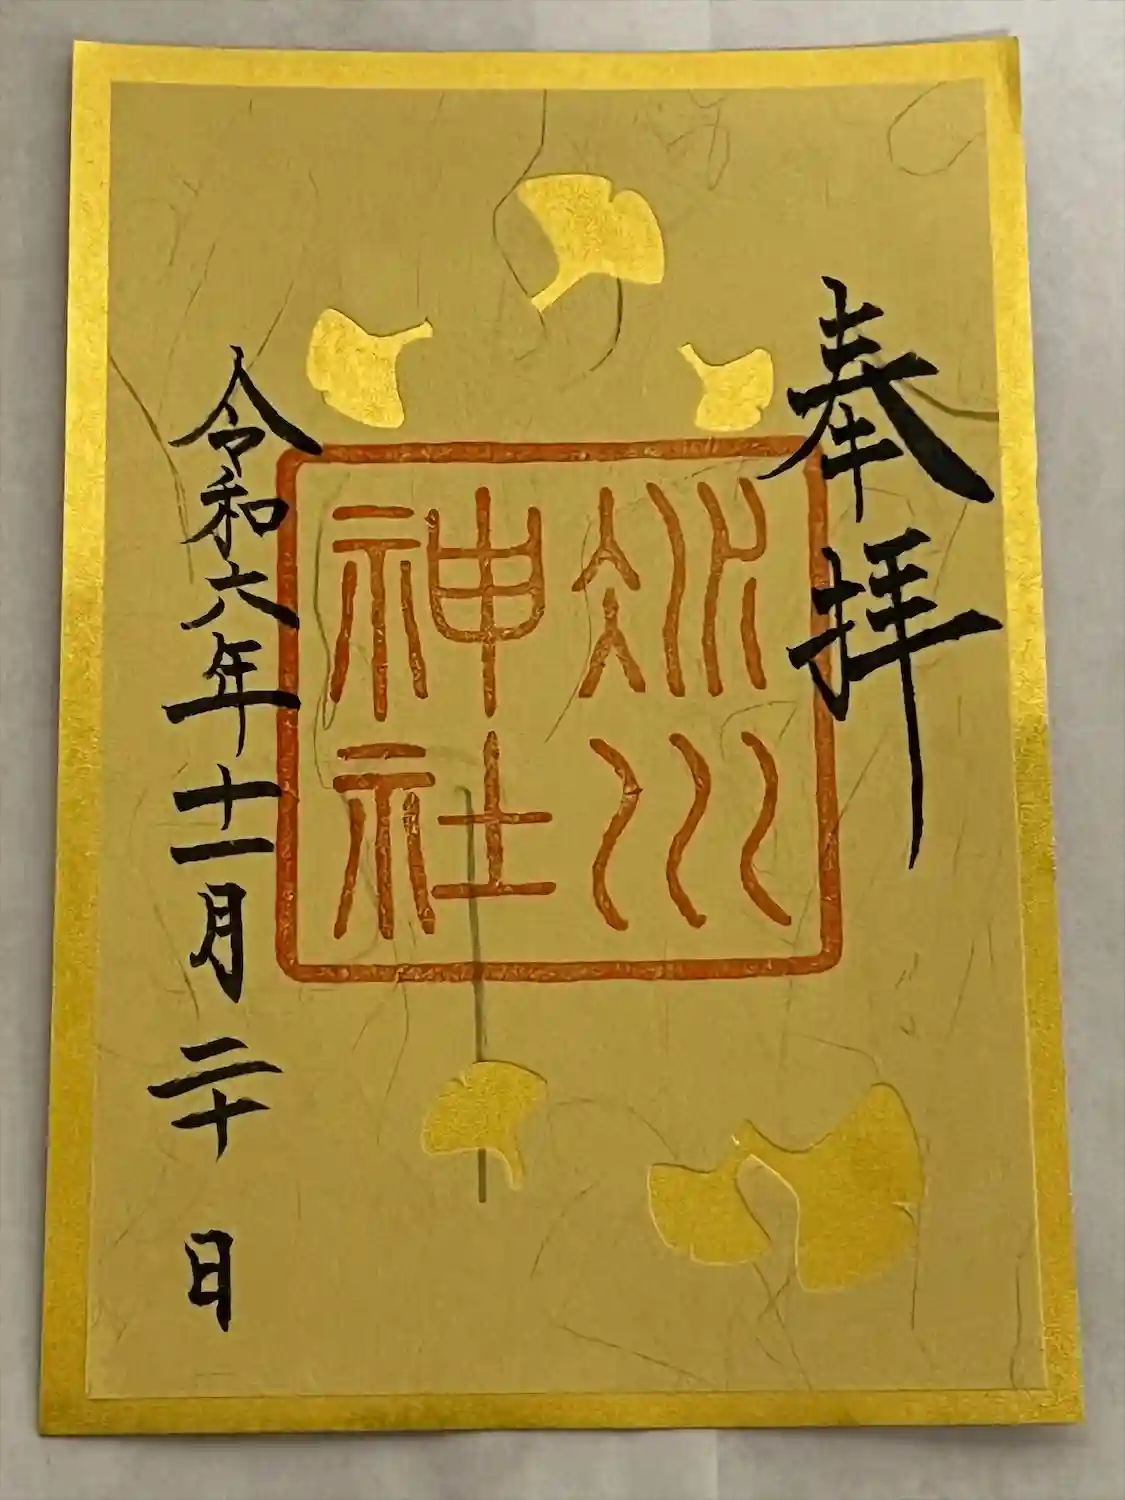 奉拝
氷川
神社
令和六年十一月二十日